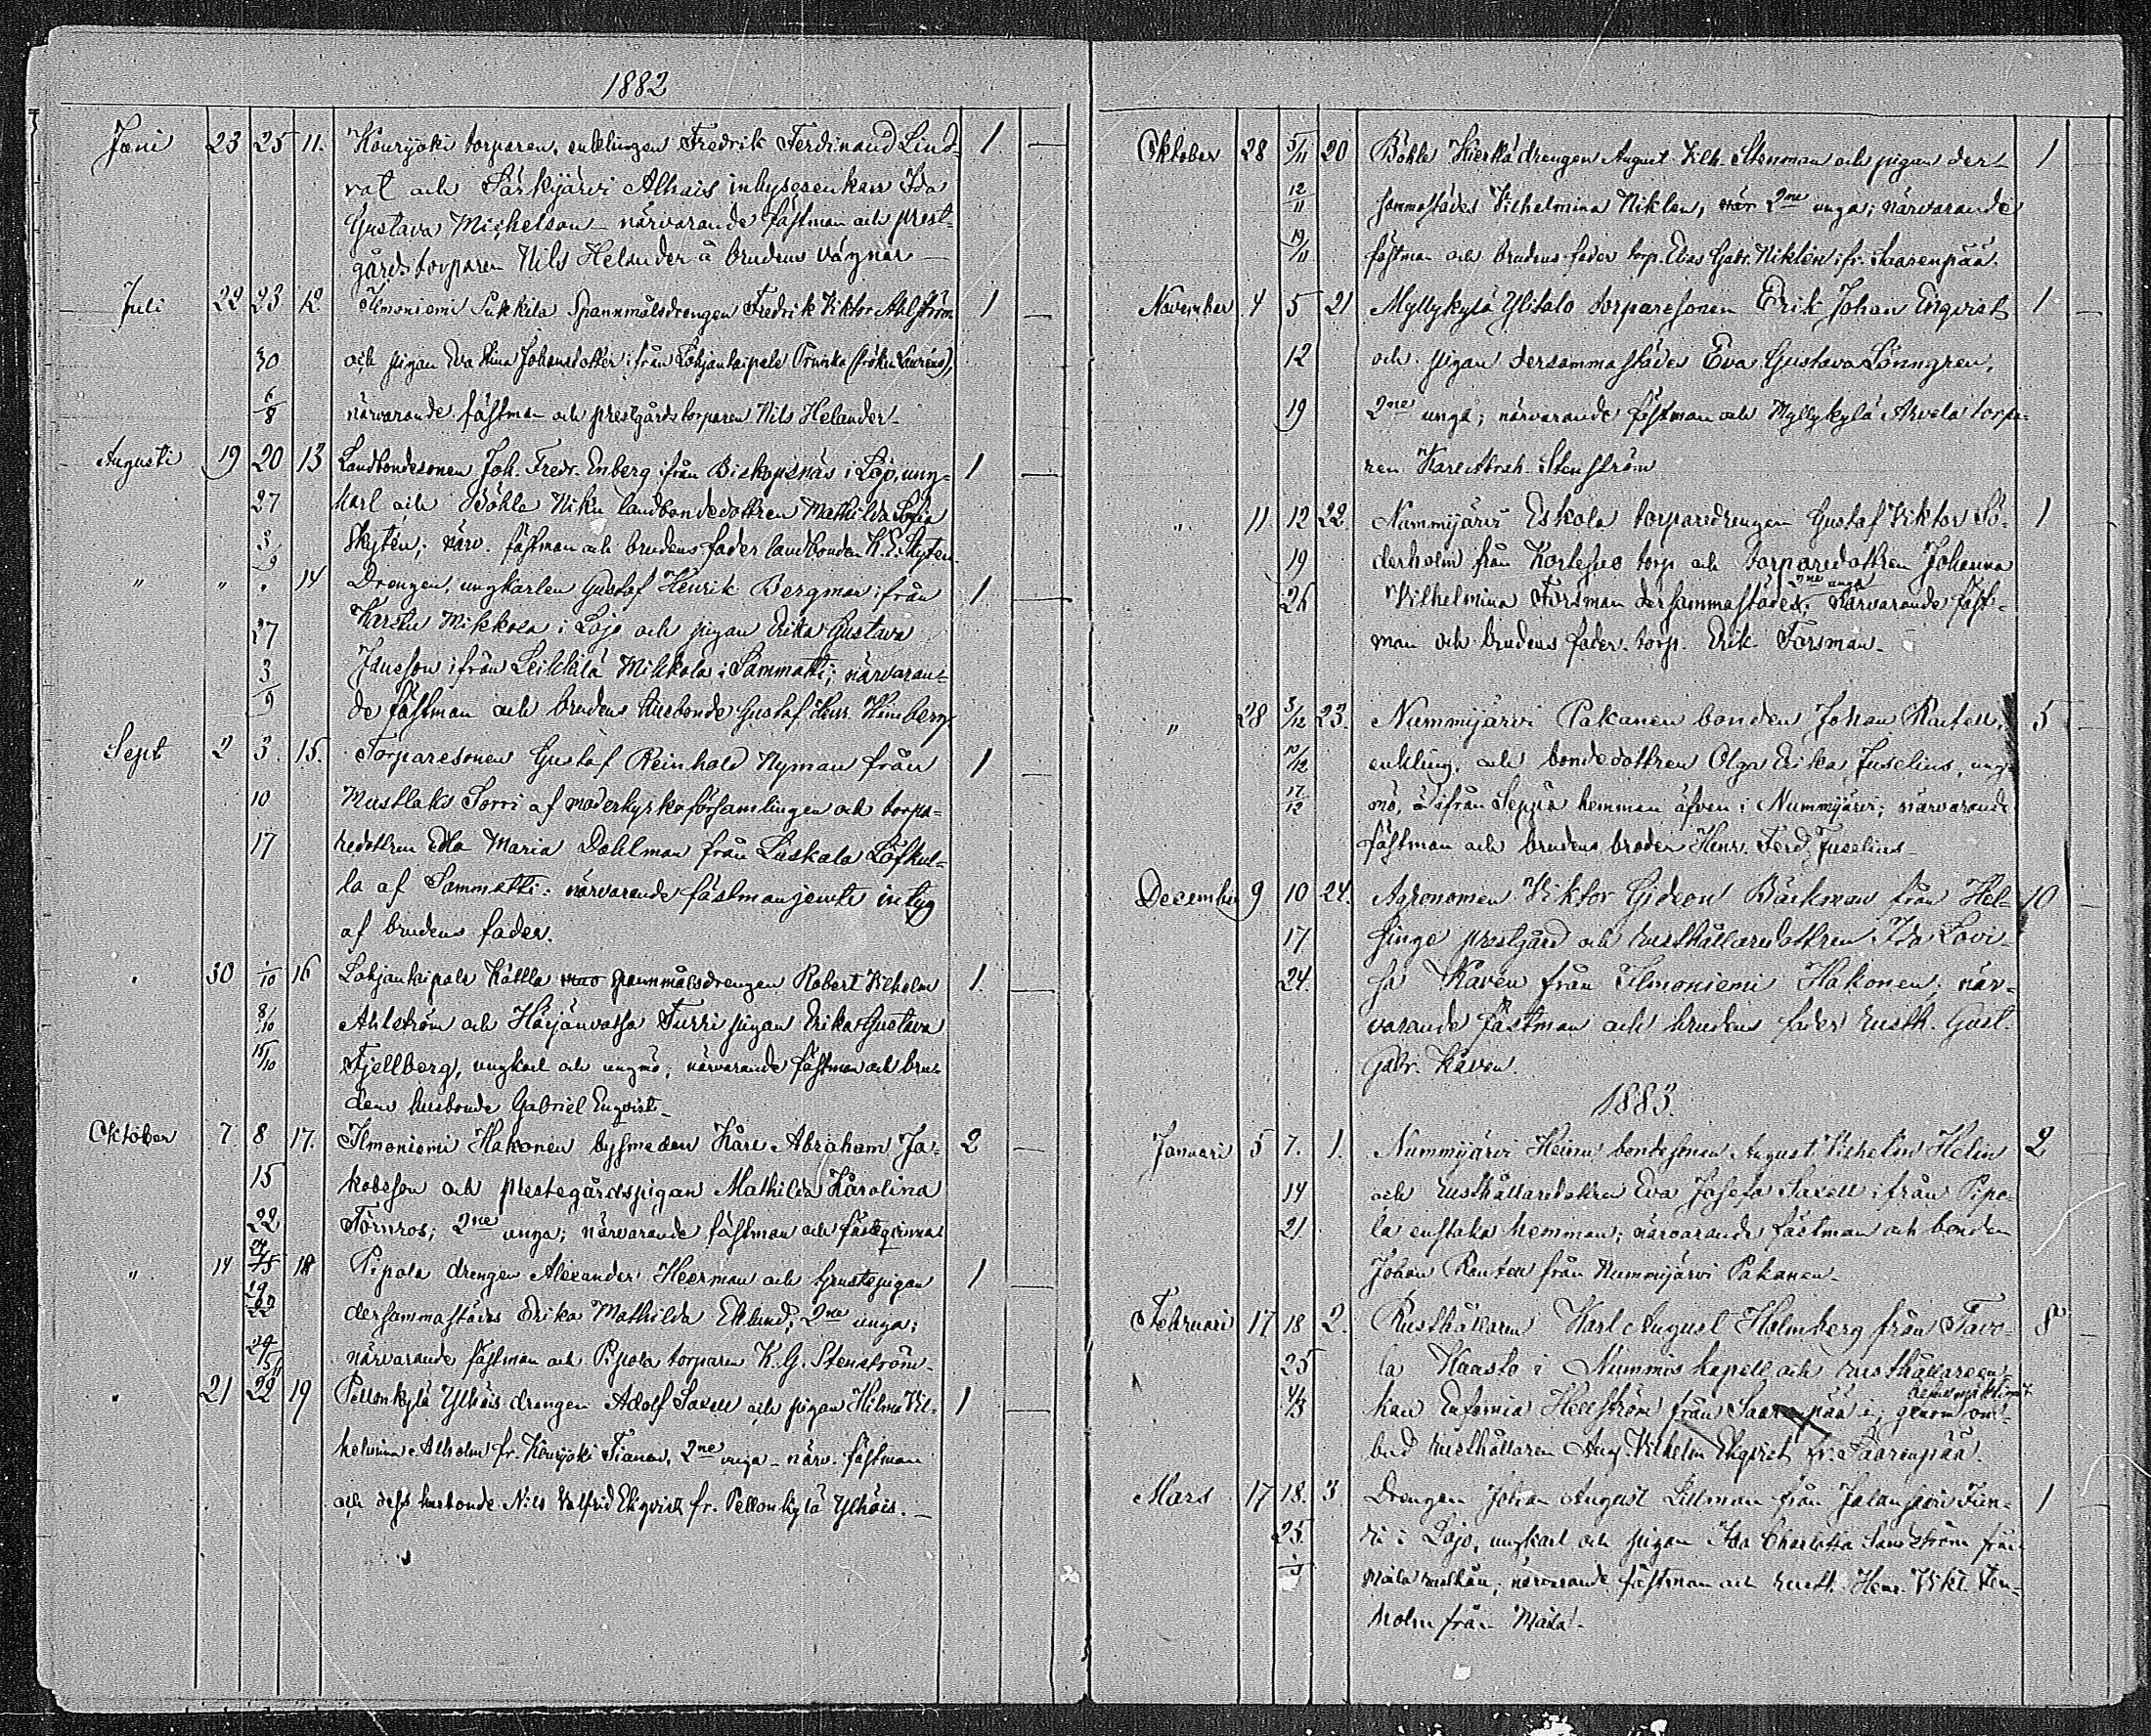 1882
Juni 23 25 11. Kouryöki torparen, enklingen Fredrik Ferdinand Lind- 1
rot och Särkjärvi Alhais inhysesenkan Ida
Gustava Michelson närvarande fästman och prest-
gårdstorparen Nils Helander å brudens vägnar
Juli 22 23 12 Ilmoniemi Pukkila Spannmålsdrengen Fredrik Viktor Ahlström 1
30 och pigan Eva Stina Johansdotter ifrån Lohjantaipale Prunka (fröken Laurens),
6/8 närvarande fästman och prestgårdstorparen Nils Helander
Augusti 19 20 13 Landbondesonen Joh. Fredr. Enberg från Biskopsnäs i Lojo, ung- 1
27 karl och Böhle Niku landbondedottren Mathilda Sofia
3/9 Skytén; närv. fästman och brudens fader landbonden K. E. Skytén
" " " 14 Drengen, ungkarlen Gustaf Henrik Bergman ifrån 1
27 Karstu Mikkola i Lojo och pigan Erika Gustava
3/9 Jansson ifrån Leikkilä Mikkola i Sammatti; närvaran-
de fästman och brudens husbonde Gustaf Henr. Heimberg
Sept 2 3. 15. Torparesonen Gustaf Reinhold Nyman från 1
10 Mustlaks Sorri af moderkyrkoförsamlingen och torpa-
17 redottren Edla Maria Dahlman från Luskala Löfkul-
la af Sammatti: närvarande fästman jemte intyg
af brudens fader.
" 30 1/10 16 Lohjantaipale Kättla spannmålsdrengen Robert Vilhelm 1.
8/10 Ahlström och Härjänvatsa Turri pigan Erika Gustava
15/10 Fjellberg, ungkarl och ungmö, närvarande fästman och bru-
dens husbonde Gabriel Enqvist
Oktober 7 8 17. Ilmoniemi Hakonen bysmeden Karl Abraham Ja- 2
15 kobsson och prestegårdspigan Mathilda Karolina
22 Törnros; 2ne unga; närvarande fästman och fästeqvinna
" 14 15 18 Pipola drengen Alexander Heerman och Grustepigan 1
22 dersammastädes Erika Mathilda Eklund; 2ne unga;
29 närvarande fästman och Pipola torparen K. G. Stenström
" 21 22 19 Pellonkylä Ylhäis drengen Adolf Saxell och pigan Hilma Vil- 1
helmina Alholm fr. Kouryöki Tianan, 2ne unga - närv. fästman
och dess husbonde Nils Valfrid Ekqvist fr. Pellonkylä Ylhäis.
Oktober 28 5/11 20 Böhle Kierkä drengen August Vilh. Stenman och pigan der- 1
12/11 sammastädes Vilhelmina Niklen, 2ne unga; närvarande
19/11 fästman och brudens fader torp. Elias Gabr. Niklén fr. Saarenpää.
November 4 5 21 Myllykylä Ylitalo torparesonen Erik Johan Enqvist 1
12 och pigan dersammastädes Eva Gustava Lönngren,
19 2ne unga; närvarande fästman och Myllykylä Arvela torpa-
ren Karl Abrah. Stenström
" 11 12 22. Nummijärvi Eskola torparedrengen Gustaf Viktor Sö- 1
19 derholm från Kortesuo torp och torparedottren Johanna
26 Vilhelmina Forsman dersammastädes, 2ne unga närvarande fäst-
man och brudens fader torp. Erik Forsman.
" 28 3/12 23. Nummijärvi Pakanen bonden Johan Rautell, 5
10/12 enkling, och bondedottren Olga Erika Juselius, ung-
17/12 mö, ifrån Seppä hemman äfven i Nummijärvi; närvarande
fästman och brudens broder Henr. Ferd. Juselius
December 9 10 24. Agronomen Viktor Gideon Bäckman från Hel- 10
17 singe prestgård och rusthållaredottren Ida Lovi-
24. sa Kavén från Ilmoniemi Hakonen; när-
varande fästman och brudens fader rusth. Gust.
Gabr. Kavén.
1883.
Januari 5 7. 1. Nummijärvi Heimo bondesonen August Vilhelm Helin 2
14 och rusthållaredottren Eva Josefa Saxell ifrån Pipo-
21. la enstaka hemman; närvarande fästman och bonden
Johan Rautell från Nummijärvi Pakanen
Februari 17 18 2. Rusthållaren Karl August Holmberg från Tavo- 8
25 la Kaasto i Nummis kapell och rusthållareen-
4/3 kan Eufemia Hellström från Saarenpää; genom om-
bud rusthållaren Aug. Vilhelm Ekqvist fr. Saarenpää.
Mars 17 18. 3. Drengen Johan August Lillman från Jalansaari Jun- 1
25. ti i Lojo, ungkarl och pigan Ida Charlotta Sandström från
närvarande fästman och rusth. Henr. Vikt. Sten-
holm från Maila.